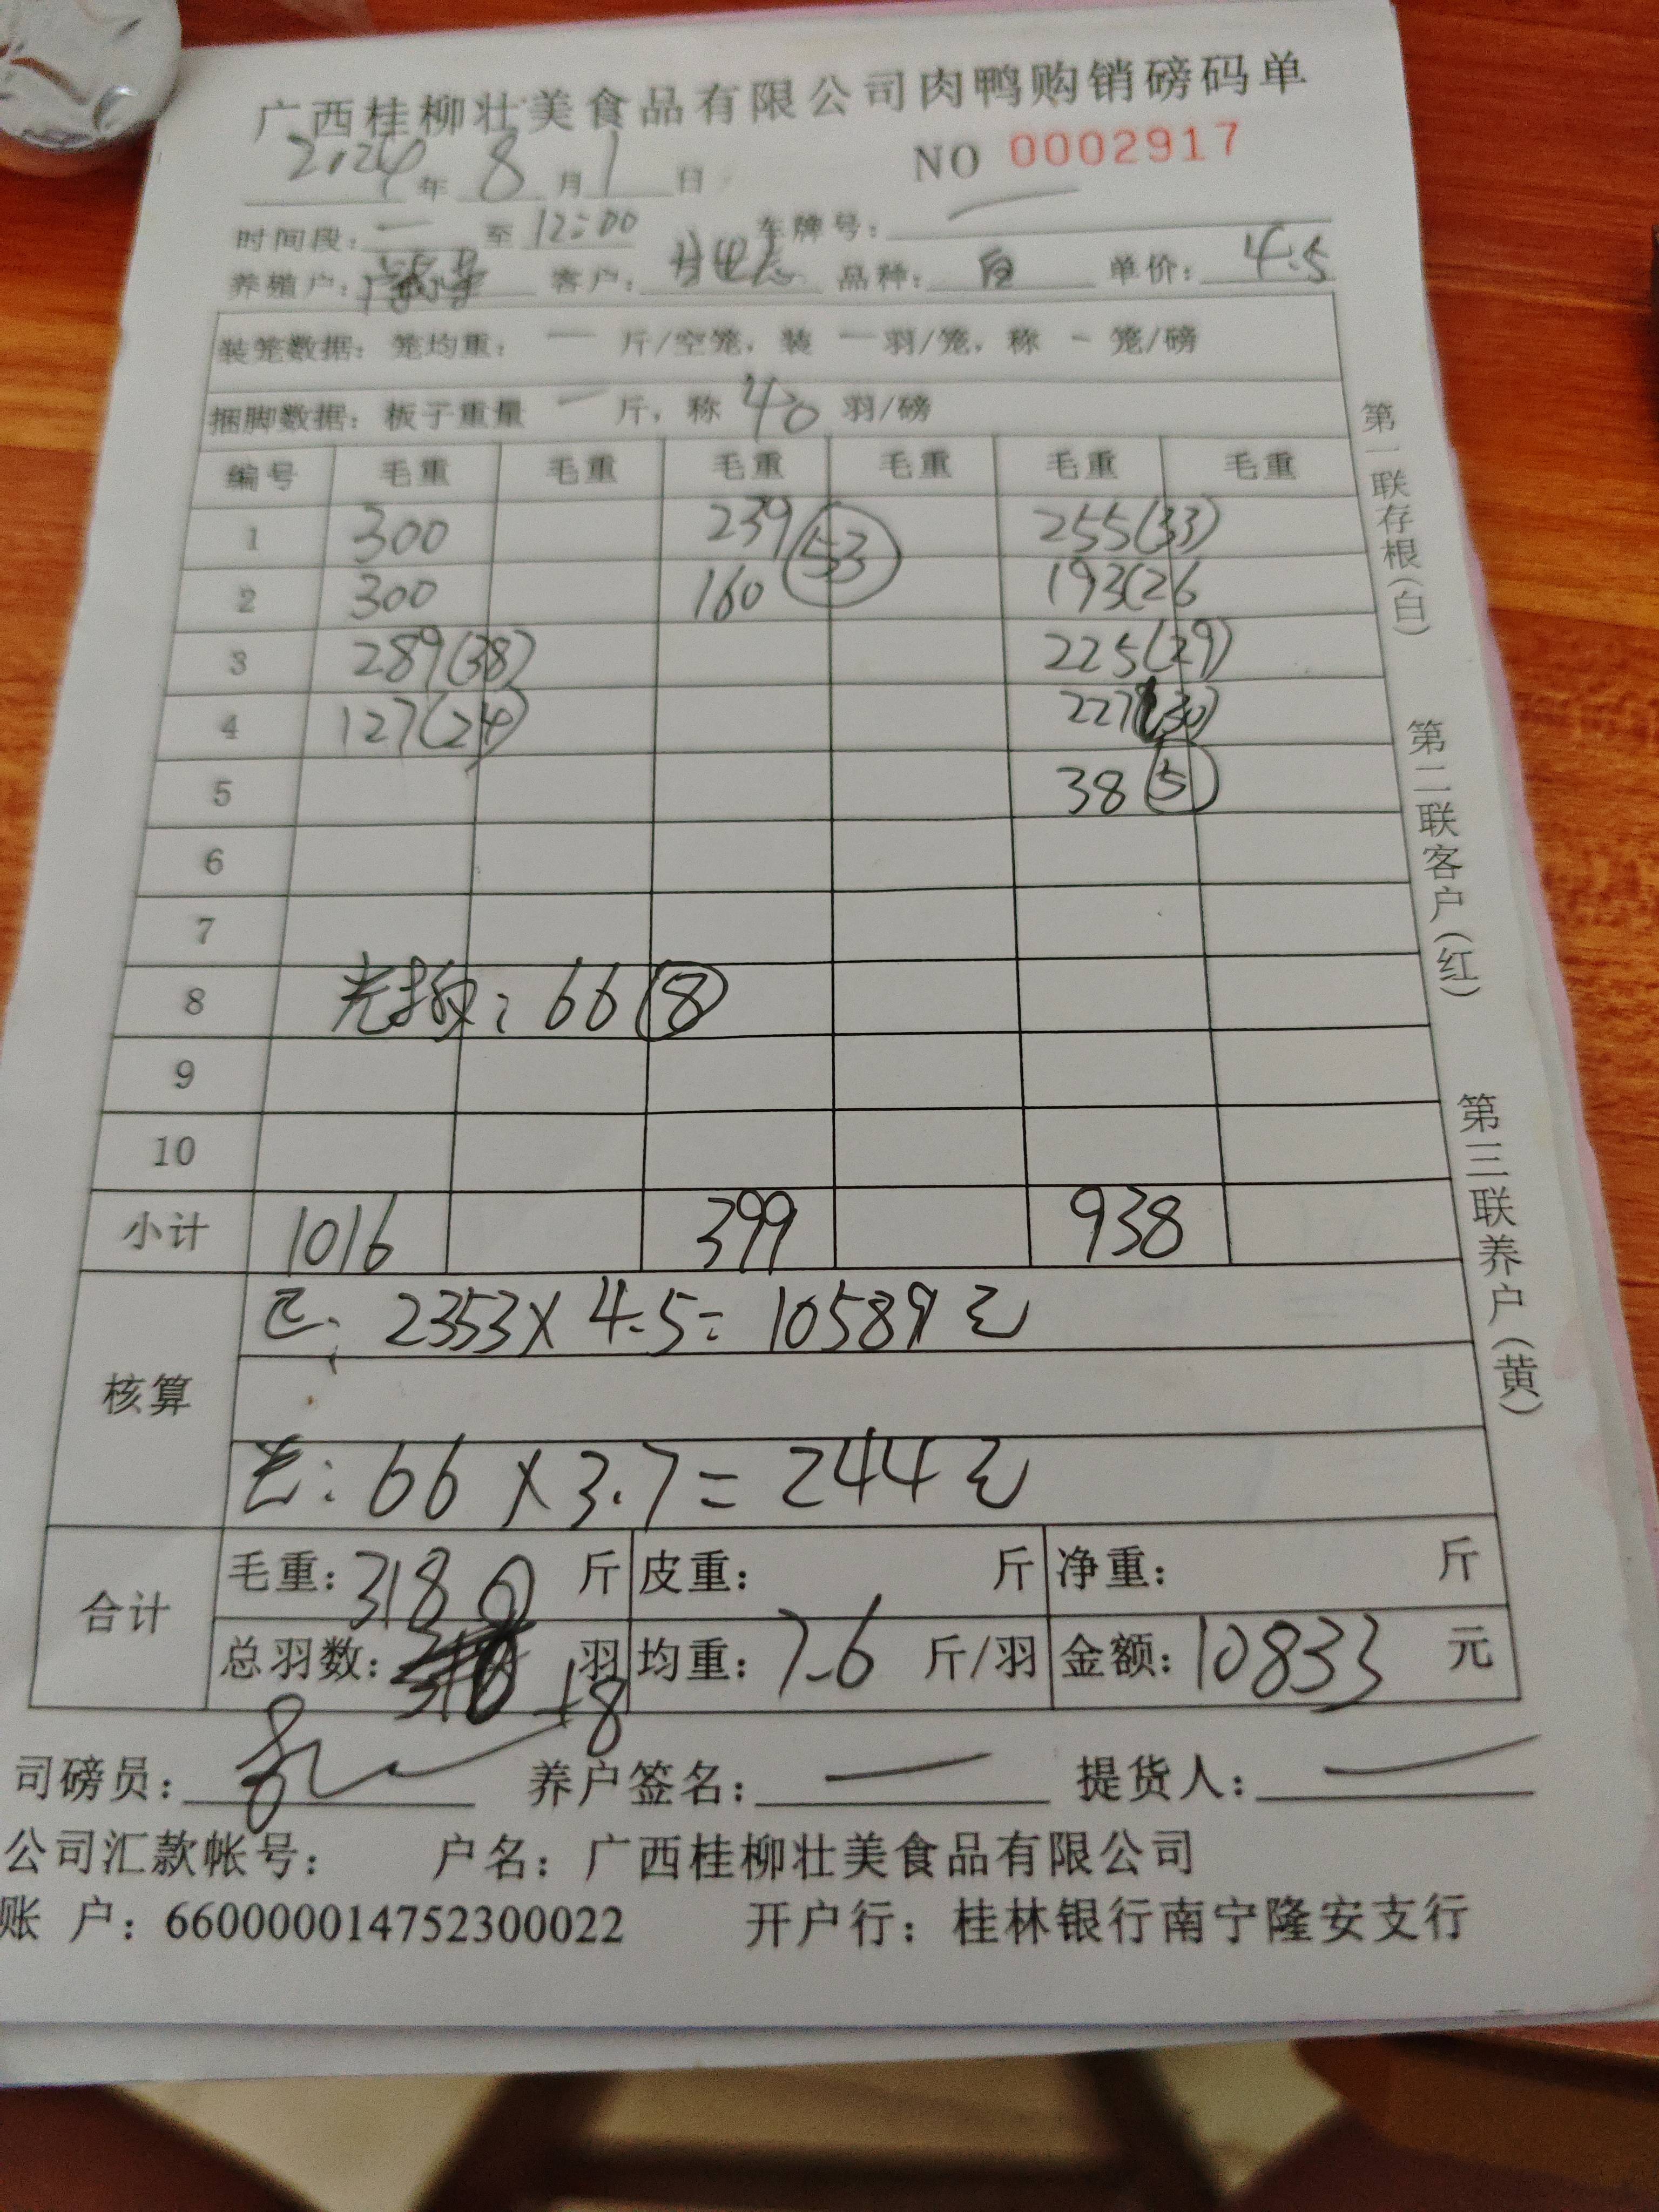 广西桂柳壮美食品有限公司肉鸭购销磅码单
2024年 8月1日 NO 0002917
时间段：一 至 12:00 车牌号：一
养殖户： 客户： 品种：白 单价：4.5
装笼数据：笼均重：一 斤/空笼，装 一 羽/笼，称 - 笼/磅
捆脚数据：板子重量 一 斤，称 40 羽/磅
编号 毛重 毛重 毛重 毛重 毛重 毛重
1 300 239 (53) 255(33)
2 300 160 193(26
3 289(38) 225(29)
4 127(24) 227(30)
5 38(5)
6
7
8 光 : 66(8)
9
10
小计 1016 399 938
核算
: 2353×4.5=10589元
光: 66×3.7=244元
合计
毛重：318 斤 皮重： 斤 净重： 斤
总羽数： 羽 +8 均重：7.6 斤/羽 金额：10833 元
司磅员： 养户签名：一 提货人：一
公司汇款帐号： 户名：广西桂柳壮美食品有限公司
账 户：660000014752300022 开户行：桂林银行南宁隆安支行
第一联存根(白)
第二联客户(红)
第三联养户(黄)